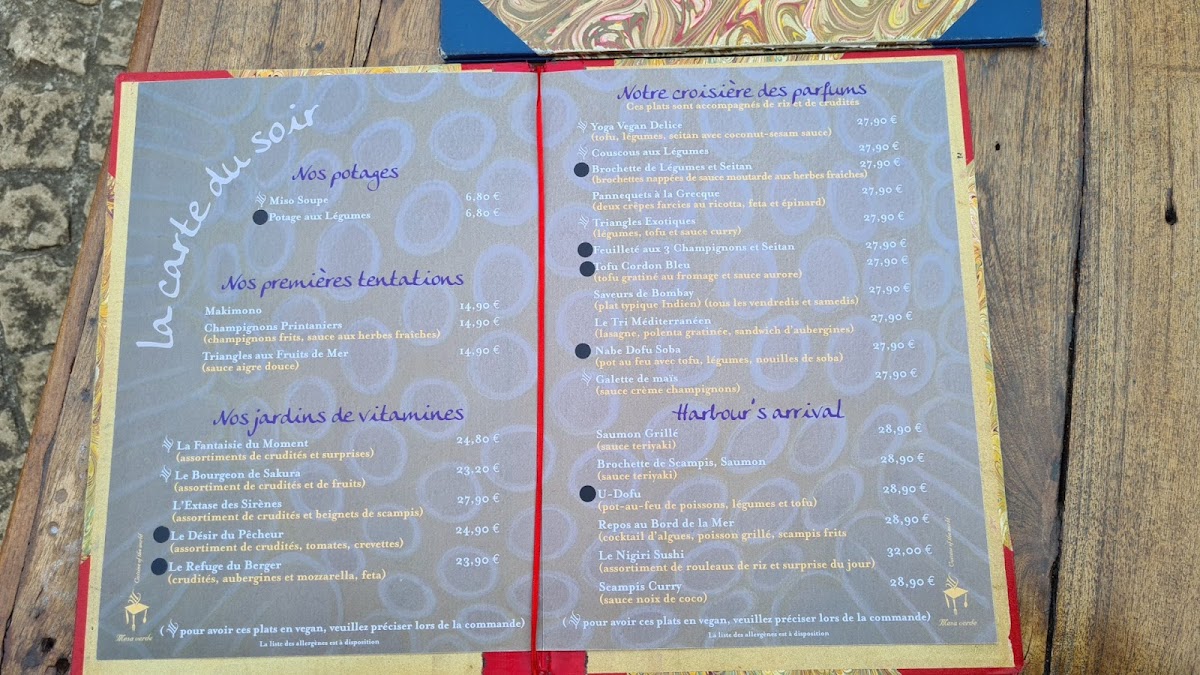 La carte du soir
Nos potages
Miso Soupe 6,80 €
Potage aux Légumes 6,80 €
Nos premières tentations
Makimono 14,90 €
Champignons Printaniers 14,90 €
(champignons frits, sauce aux herbes fraîches)
Triangles aux Fruits de Mer 14,90 €
(sauce aigre douce)
Nos jardins de vitamines
La Fantaisie du Moment 24,80 €
(assortiments de crudités et surprises)
Le Bourgeon de Sakura 23,20 €
(assortiment de crudités et de fruits)
L'Extase des Sirènes 27,90 €
(assortiment de crudités et beignets de scampis)
Le Désir du Pêcheur 24,90 €
(assortiment de crudités, tomates, crevettes)
Le Refuge du Berger 23,90 €
(crudités, aubergines et mozzarella, feta)
( pour avoir ces plats en vegan, veuillez préciser lors de la commande)
La liste des allergènes est à disposition
Mesa verde
Notre croisière des parfums
Ces plats sont accompagnés de riz et de crudités
Yoga Vegan Delice 27,90 €
(tofu, légumes, seitan avec coconut-sesam sauce)
Couscous aux Légumes 27,90 €
Brochette de Légumes et Seitan 27,90 €
(brochettes nappées de sauce moutarde aux herbes fraîches)
Pannequets à la Grecque 27,90 €
(deux crêpes farcies au ricotta, feta et épinard)
Triangles Exotiques 27,90 €
(légumes, tofu et sauce curry)
Feuilleté aux 3 Champignons et Seitan 27,90 €
Tofu Cordon Bleu 27,90 €
(tofu gratiné au fromage et sauce aurore)
Saveurs de Bombay 27,90 €
(plat typique Indien) (tous les vendredis et samedis)
Le Tri Méditerranéen 27,90 €
(lasagne, polenta gratinée, sandwich d'aubergines)
Nabe Dofu Soba 27,90 €
(pot au feu avec tofu, légumes, nouilles de soba)
Galette de maïs 27,90 €
(sauce crème champignons)
Harbour's arrival
Saumon Grillé 28,90 €
(sauce teriyaki)
Brochette de Scampis, Saumon 28,90 €
(sauce teriyaki)
U-Dofu 28,90 €
(pot-au-feu de poissons, légumes et tofu)
Repos au Bord de la Mer 28,90 €
(cocktail d'algues, poisson grillé, scampis frits
Le Nigiri Sushi 32,00 €
(assortiment de rouleaux de riz et surprise du jour)
Scampis Curry 28,90 €
(sauce noix de coco)
( pour avoir ces plats en vegan, veuillez préciser lors de la commande)
La liste des allergènes est à disposition
Mesa verde